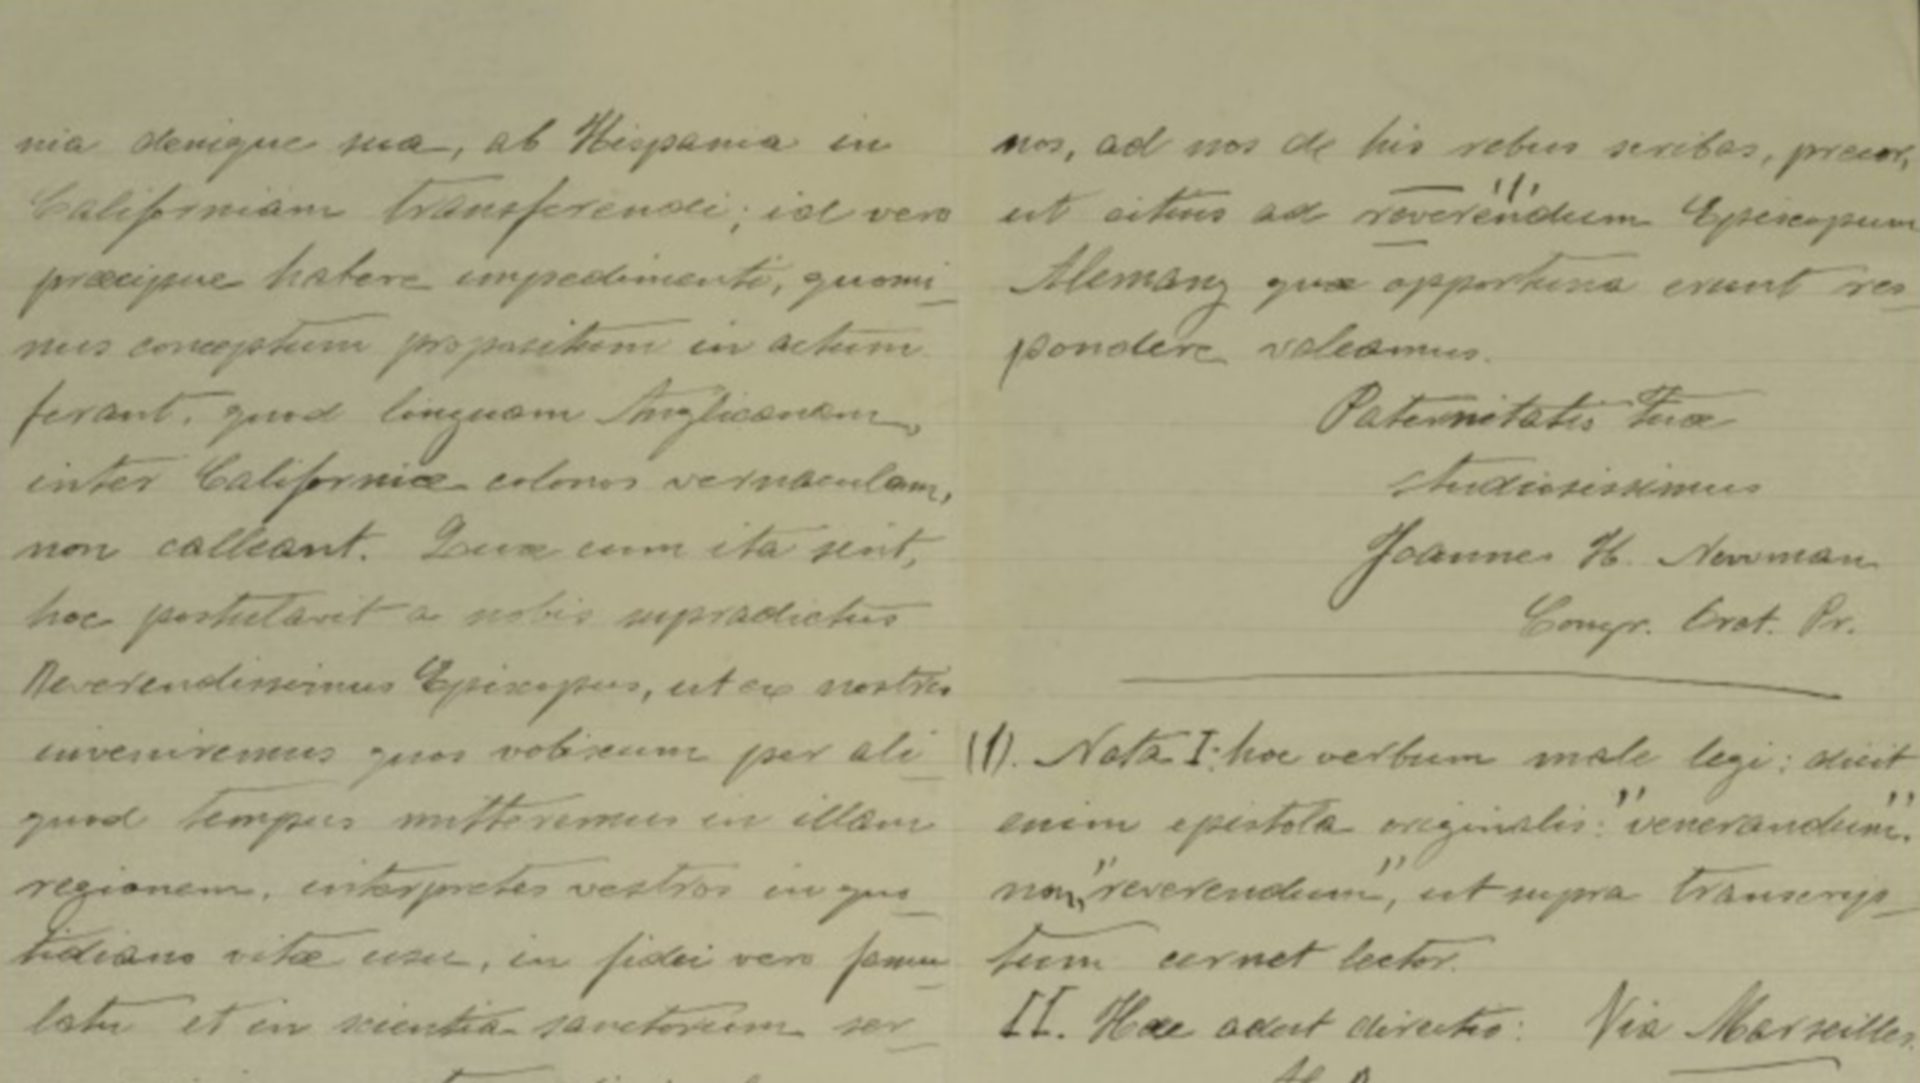 nia denique sua, ab Hispania in
Californiam transferendi; id vero
præcipue habere impedimenti, quomi_
nus conceptum propositum in actum
ferant, quod linguam Anglicanam,
inter Californiæ colonos vernaculam,
non calleant. Quæ cum ita sint,
hoc postulavit a nobis supradictus
Reverendissimus Episcopus, ut ex nostris
inveniremus quos vobiscum per ali_
quod tempus mitteremus in illam
regionem, interpretes vestros in quo_
tidiano vitæ usu, in fidei vero famu_
latu et in scientia sanctorum ser_
nos, ad nos de his rebus scribas, precor,
ut citius ad reverendum (1) Episcopum
Alemany quæ opportuna erunt res_
pondere valeamus.
Paternitatis Tuæ
studiosissimus
Joannes H. Newman
Congr. Orat. Pr.
(1). Nota I. hoc verbum male legi: dicit
enim epistola originalis: "venerandum".
non, "reverendum", ut supra transcrip_
tum cernet lector.
II. Hæc adest directio: Via Marseilles.